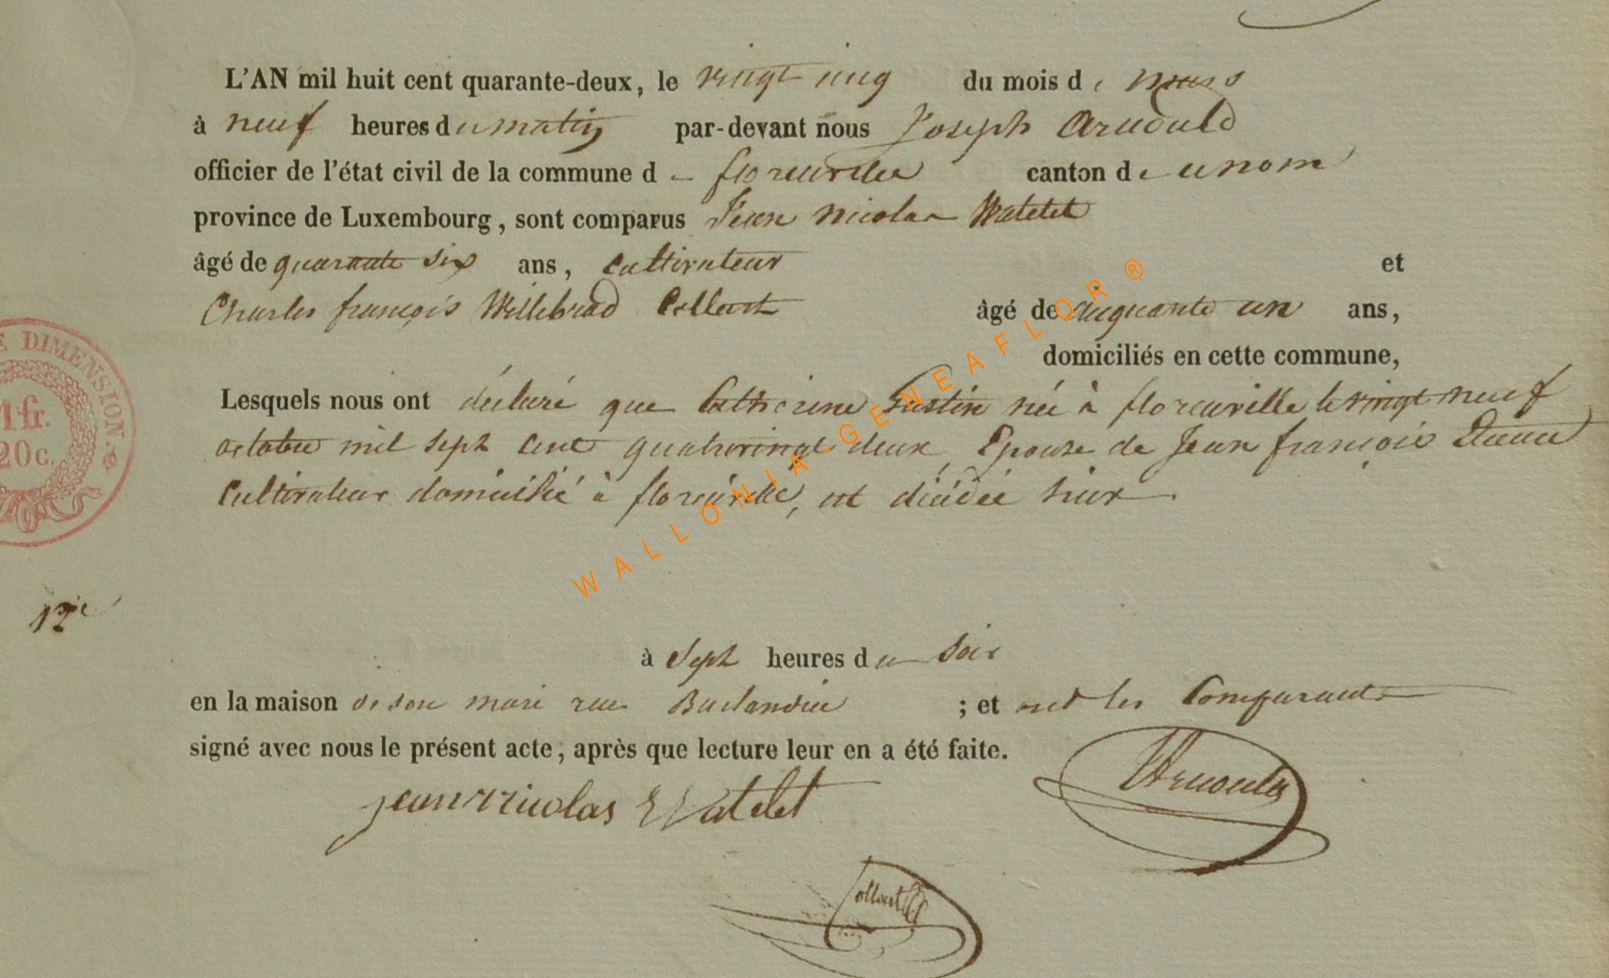 L'AN mil huit cent quarante-deux, le vingt cinq du mois de mars
à neuf heures du matin par-devant nous Joseph Arnould
officier de l'état civil de la commune de florenville canton de ce nom
province de Luxembourg, sont comparus Jean Nicolas Watelet
âgé de quarante six ans, Cultivateur et
Charles françois Willebrod Collart âgé de cinquante un ans,
domiciliés en cette commune,
Lesquels nous ont déclaré que Catherine Gustin née à florenville le vingt neuf
octobre mil sept cent quatrevingt deux, Epouse de Jean françois
Cultivateur domicilié à florenville, est décédée hier
12e
à Sept heures du Soir
en la maison de son mari rue ; et ont les Comparants
signé avec nous le présent acte, après que lecture leur en a été faite.
jean nicolas Watelet
Arnould
Collart
E DIMENSION.
1 fr.
20 c.
WALLONIA - GENEAFLOR ®